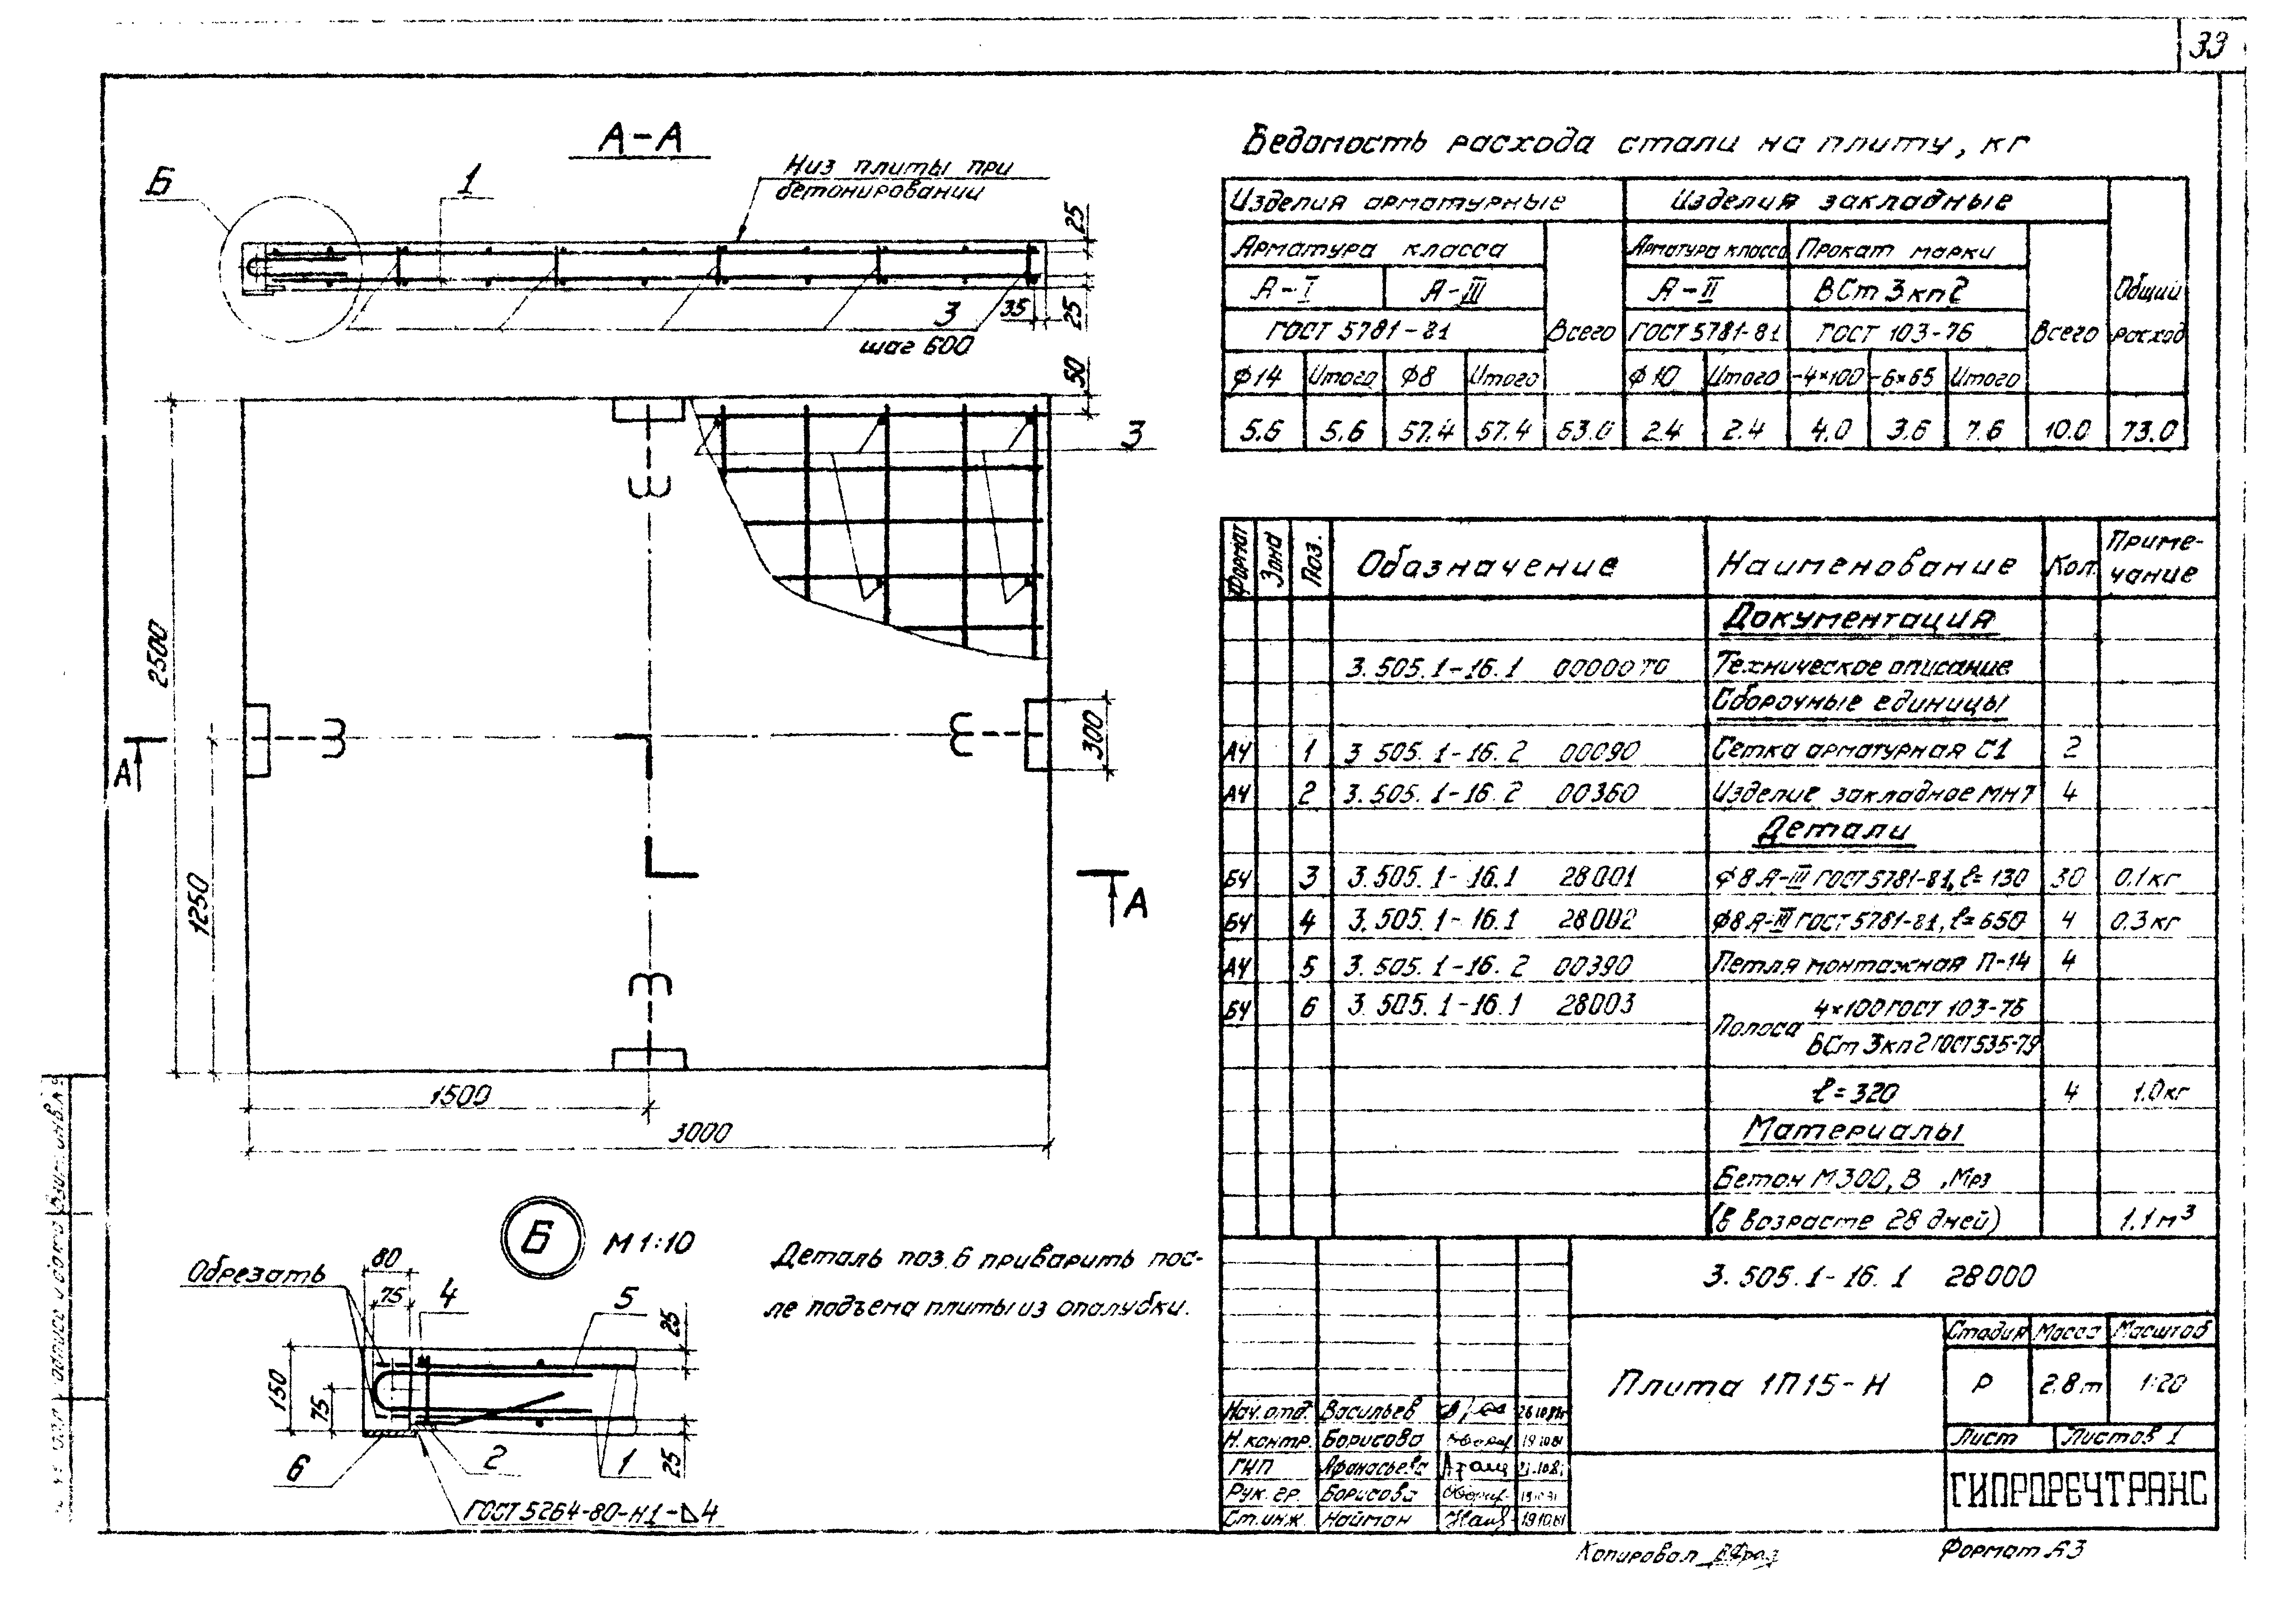 33
А-А
Б
1
Низ плиты при
бетонировании
25
3
35
25
шаг 600
50
3
2500
1250
300
А
А
1500
3000
Б М 1:10
Обрезать
80
75
4
5
25
150
75
6
2
1
25
ГОСТ 5264-80-Н1-⊿4
Деталь поз. 6 приварить пос-
ле подъема плиты из опалубки.
Ведомость расхода стали на плиту, кг
Изделия арматурные Изделия закладные Общий расход
Арматура класса Всего Арматура класса Прокат марки Всего
А-I А-III А-II ВСт 3кп2
ГОСТ 5781-81 ГОСТ 5781-81 ГОСТ 103-76
ф14 Итого ф8 Итого ф10 Итого -4×100 -6×65 Итого
5.6 5.6 57.4 57.4 63.0 2.4 2.4 4.0 3.6 7.6 10.0 73.0
Формат Зона Поз. Обозначение Наименование Кол. Приме-
чание
Документация
3.505.1-16.1 00000ТО Техническое описание
Сборочные единицы
А4 1 3.505.1-16.2 00090 Сетка арматурная С1 2
А4 2 3.505.1-16.2 00360 Изделие закладное МН7 4
Детали
БЧ 3 3.505.1-16.1 28001 ф8 А-III ГОСТ 5781-81, ℓ=130 30 0.1кг
БЧ 4 3.505.1-16.1 28002 ф8 А-III ГОСТ 5781-81, ℓ=650 4 0.3кг
А4 5 3.505.1-16.2 00390 Петля монтажная П-14 4
БЧ 6 3.505.1-16.1 28003 Полоса 4×100 ГОСТ 103-76
ВСт 3кп2 ГОСТ 535-79
ℓ=320 4 1.0кг
Материалы
Бетон М300, В , Мрз
(в возрасте 28 дней) 1.1 м³
3.505.1-16.1 28000
Плита 1П15-Н
Стадия Масса Масштаб
Р 2.8т 1:20
Лист Листов 1
ГИПРОРЕЧТРАНС
Нач. отд. Васильев
Н. контр. Борисова 19.10.81
ГИП Афанасьева
Рук. гр. Борисова
Ст. инж. Найман 19.10.81
Копировал
Формат А3